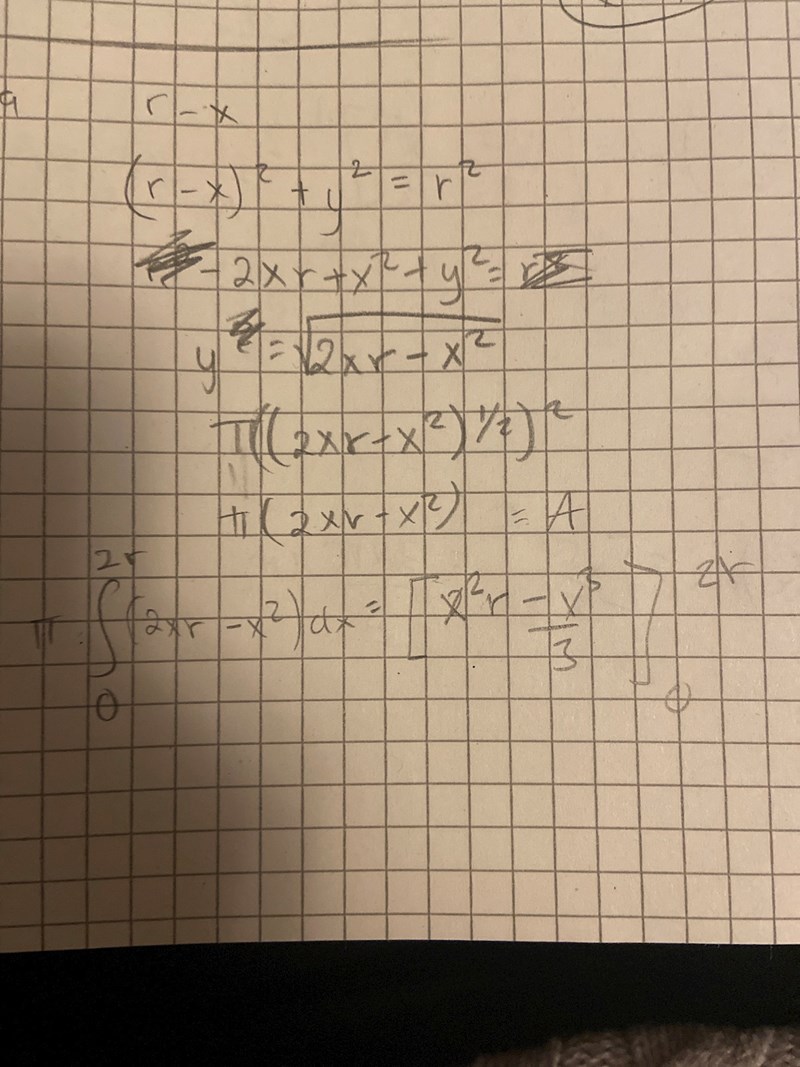 a
r - x
(r - x)² + y² = r²
- 2xr + x² + y² =
y = √2xr - x²
π((2xr - x²)^1/2)²
π(2xr - x²) = A
π ∫₀²ʳ (2xr - x²)dx = [x²r - x³/3]₀²ʳ